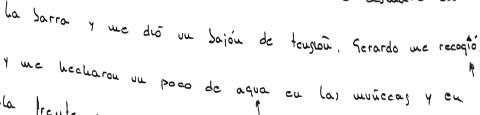 la barra y me dió un bajón de tensión. Gerardo me recogió
y me hecharon un poco de agua en las muñecas y en
la frente